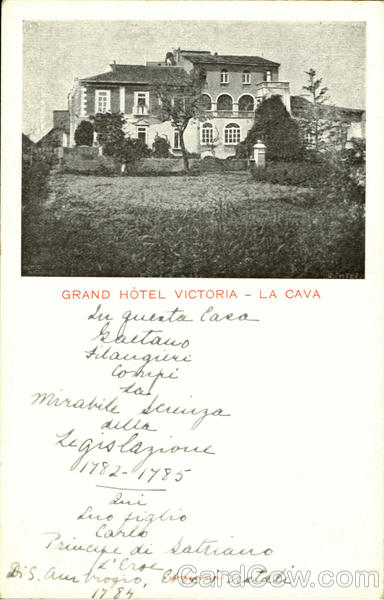 GRAND HÔTEL VICTORIA - LA CAVA
In questa Casa
Gaetano
Filangieri
Compì
La
Mirabile Scienza
della
Legislazione
1782-1785
Qui
Suo figlio
Carlo
Principe di Satriano
L'Eroe
Di S. Ambrogio,
1784
CardCow.com